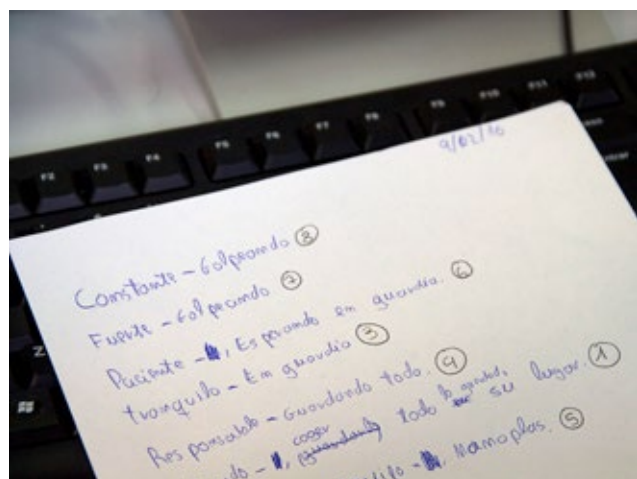 F2 F3 F4 F5 F6 F7 F8 F9 F10 F11 F12
9/02/10
Constante - Golpeando 8
Fuerte - Golpeando 7
Paciente - , Esperando en guardia. 6
tranquilo - Em guardia 3
Responsable - Guardando todo. 9
coger guardando todo su lugar. 1
Manoplas. 5
Z